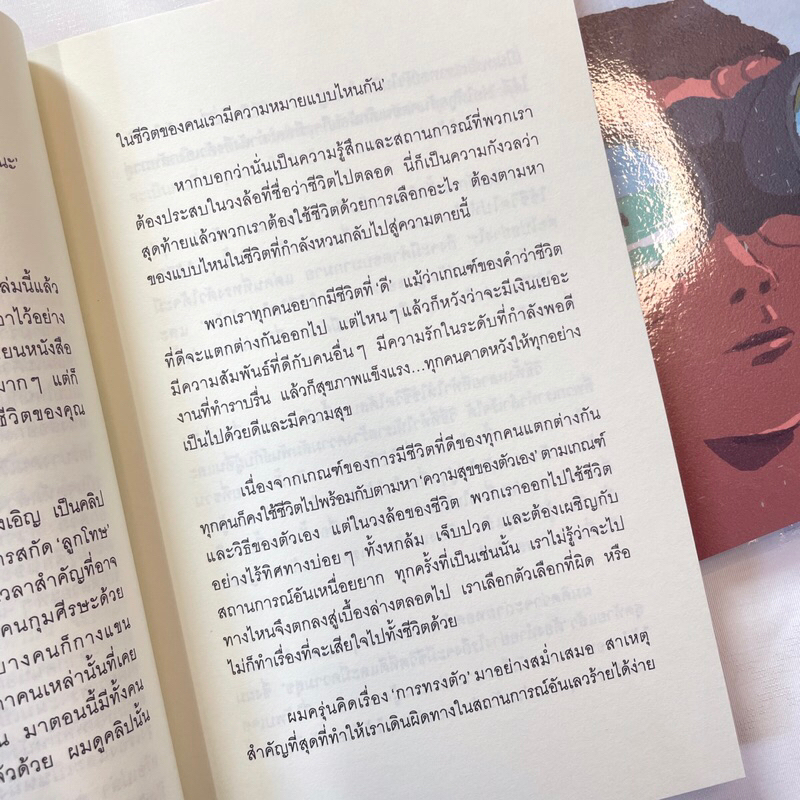 นะ'
เล่มนี้แล้ว
อาไว้อย่าง
ขียนหนังสือ
มากๆ แต่ก็
ชีวิตของคุณ
เอิญ เป็นคลิป
ารสกัด 'ลูกโทษ'
เวลาสำคัญที่อาจ
คนกุมศีรษะด้วย
บางคนก็กางแขน
าคนเหล่านั้นที่เคย
น มาตอนนี้มีทั้งคน
ด้วย ผมดูคลิปนั้น
ในชีวิตของคนเรามีความหมายแบบไหนกัน'
หากบอกว่านั่นเป็นความรู้สึกและสถานการณ์ที่พวกเรา
ต้องประสบในวงล้อที่ชื่อว่าชีวิตไปตลอด นี่ก็เป็นความกังวลว่า
สุดท้ายแล้วพวกเราต้องใช้ชีวิตด้วยการเลือกอะไร ต้องตามหา
ของแบบไหนในชีวิตที่กำลังหวนกลับไปสู่ความตายนี้
พวกเราทุกคนอยากมีชีวิตที่ 'ดี' แม้ว่าเกณฑ์ของคำว่าชีวิต
ที่ดีจะแตกต่างกันออกไป แต่ไหนๆ แล้วก็หวังว่าจะมีเงินเยอะ
มีความสัมพันธ์ที่ดีกับคนอื่นๆ มีความรักในระดับที่กำลังพอดี
งานที่ทำราบรื่น แล้วก็สุขภาพแข็งแรง...ทุกคนคาดหวังให้ทุกอย่าง
เป็นไปด้วยดีและมีความสุข
เนื่องจากเกณฑ์ของการมีชีวิตที่ดีของทุกคนแตกต่างกัน
ทุกคนก็คงใช้ชีวิตไปพร้อมกับตามหา 'ความสุขของตัวเอง' ตามเกณฑ์
และวิธีของตัวเอง แต่ในวงล้อของชีวิต พวกเราออกไปใช้ชีวิต
อย่างไร้ทิศทางบ่อยๆ ทั้งหกล้ม เจ็บปวด และต้องเผชิญกับ
สถานการณ์อันเหนื่อยยาก ทุกครั้งที่เป็นเช่นนั้น เราไม่รู้ว่าจะไป
ทางไหนจึงตกลงสู่เบื้องล่างตลอดไป เราเลือกตัวเลือกที่ผิด หรือ
ไม่ก็ทำเรื่องที่จะเสียใจไปทั้งชีวิตด้วย
ผมครุ่นคิดเรื่อง 'การทรงตัว' มาอย่างสม่ำเสมอ สาเหตุ
สำคัญที่สุดที่ทำให้เราเดินผิดทางในสถานการณ์อันเลวร้ายได้ง่าย